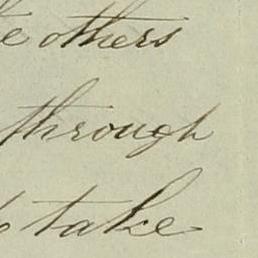 others
through
take